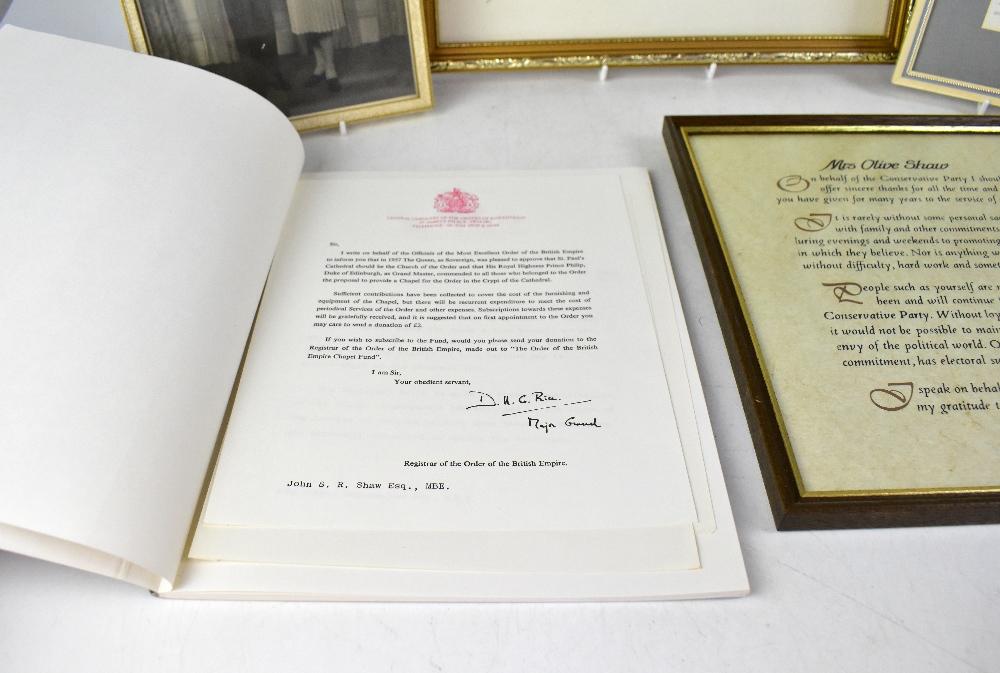 CENTRAL CHANCERY OF THE ORDERS OF KNIGHTHOOD
Sir,
I write on behalf of the Officials of the Most Excellent Order of the British Empire
to inform you that in 1957 The Queen, as Sovereign, was pleased to approve that St. Paul's
Cathedral should be the Church of the Order and that His Royal Highness Prince Philip,
Duke of Edinburgh, as Grand Master, commended to all those who belonged to the Order
the proposal to provide a Chapel for the Order in the Crypt of the Cathedral.
Sufficient contributions have been collected to cover the cost of the furnishing and
equipment of the Chapel, but there will be recurrent expenditure to meet the cost of
periodical Services of the Order and other expenses. Subscriptions towards these expenses
will be gratefully received, and it is suggested that on first appointment to the Order you
may care to send a donation of £2.
If you wish to subscribe to the Fund, would you please send your donation to the
Registrar of the Order of the British Empire, made out to "The Order of the British
Empire Chapel Fund".
I am Sir,
Your obedient servant,
D. H. C. Rice.
Major General
Registrar of the Order of the British Empire.
John S. R. Shaw Esq., MBE.
Mrs Olive Shaw
On behalf of the Conservative Party I shou
offer sincere thanks for all the time and
you have given for many years to the service of
It is rarely without some personal sa
with family and other commitments
luring evenings and weekends to promoting
in which they believe. Nor is anything w
without difficulty, hard work and somet
People such as yourself are
been and will continue
Conservative Party. Without loy
it would not be possible to main
envy of the political world. O
commitment, has electoral su
I speak on behal
my gratitude t